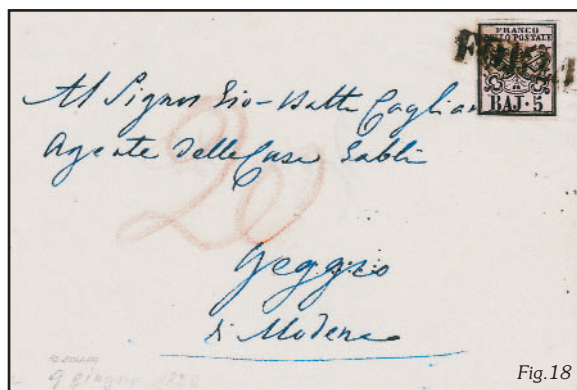 FRANCO
BOLLO POSTALE
BAJ. 5
Al Signor Gio-Batta Caglian
Agente delle Case
20
di Modena
9 giugno 1850
Fig.18